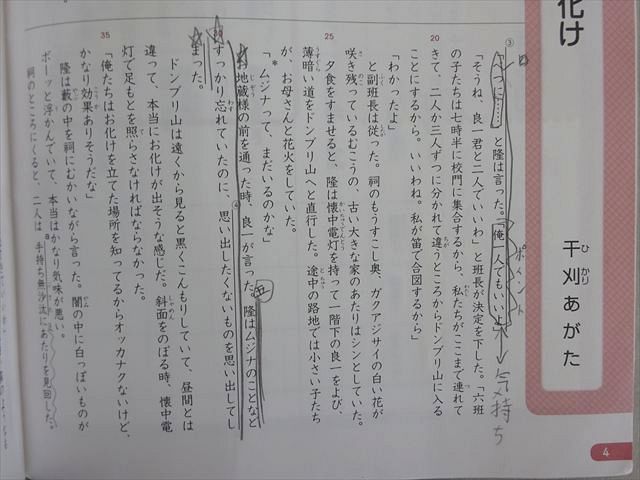 化け
干刈あがた
ひかり
③
「べつに……」と隆は言った。「俺一人でもいいよ」
ポイント
気持ち
「そうね、良一君と二人でいいわ」と班長が決定を下した。「六班
の子たちは七時半に校門に集合するから、私たちがここまで連れて
きて、二人か三人ずつに分かれて違うところからドンブリ山に入る
ことにするから。いいわね。私が笛で合図するから」
20
「わかったよ」
と副班長は従った。祠のもうすこし奥、ガクアジサイの白い花が
咲き残っているむこうの、古い大きな家のあたりはシンとしていた。
夕食をすませると、隆は懐中電灯を持って一階下の良一をよび、
25
薄暗い道をドンブリ山へと直行した。途中の路地では小さい子たち
が、お母さんと花火をしていた。
「*ムジナって、まだいるのかな」
地蔵様の前を通った時、良一が言った。④隆はムジナのことなど
すっかり忘れていたのに、思い出したくないものを思い出してし
30
まった。
ドンブリ山は遠くから見ると黒くこんもりしていて、昼間とは
違って、本当にお化けが出そうな感じだ。斜面をのぼる時、懐中電
灯で足もとを照らさなければならなかった。
「俺たちはお化けを立てた場所を知ってるからオッカナクないけど、
35
かなり効果ありそうだな」
隆は藪の中を祠にむかいながら言った。闇の中に白っぽいものが
ボーッと浮かんでいて、本当はかなり気味が悪い。
祠のところにくると、二人は*手持ち無沙汰にあたりを見回した。
4